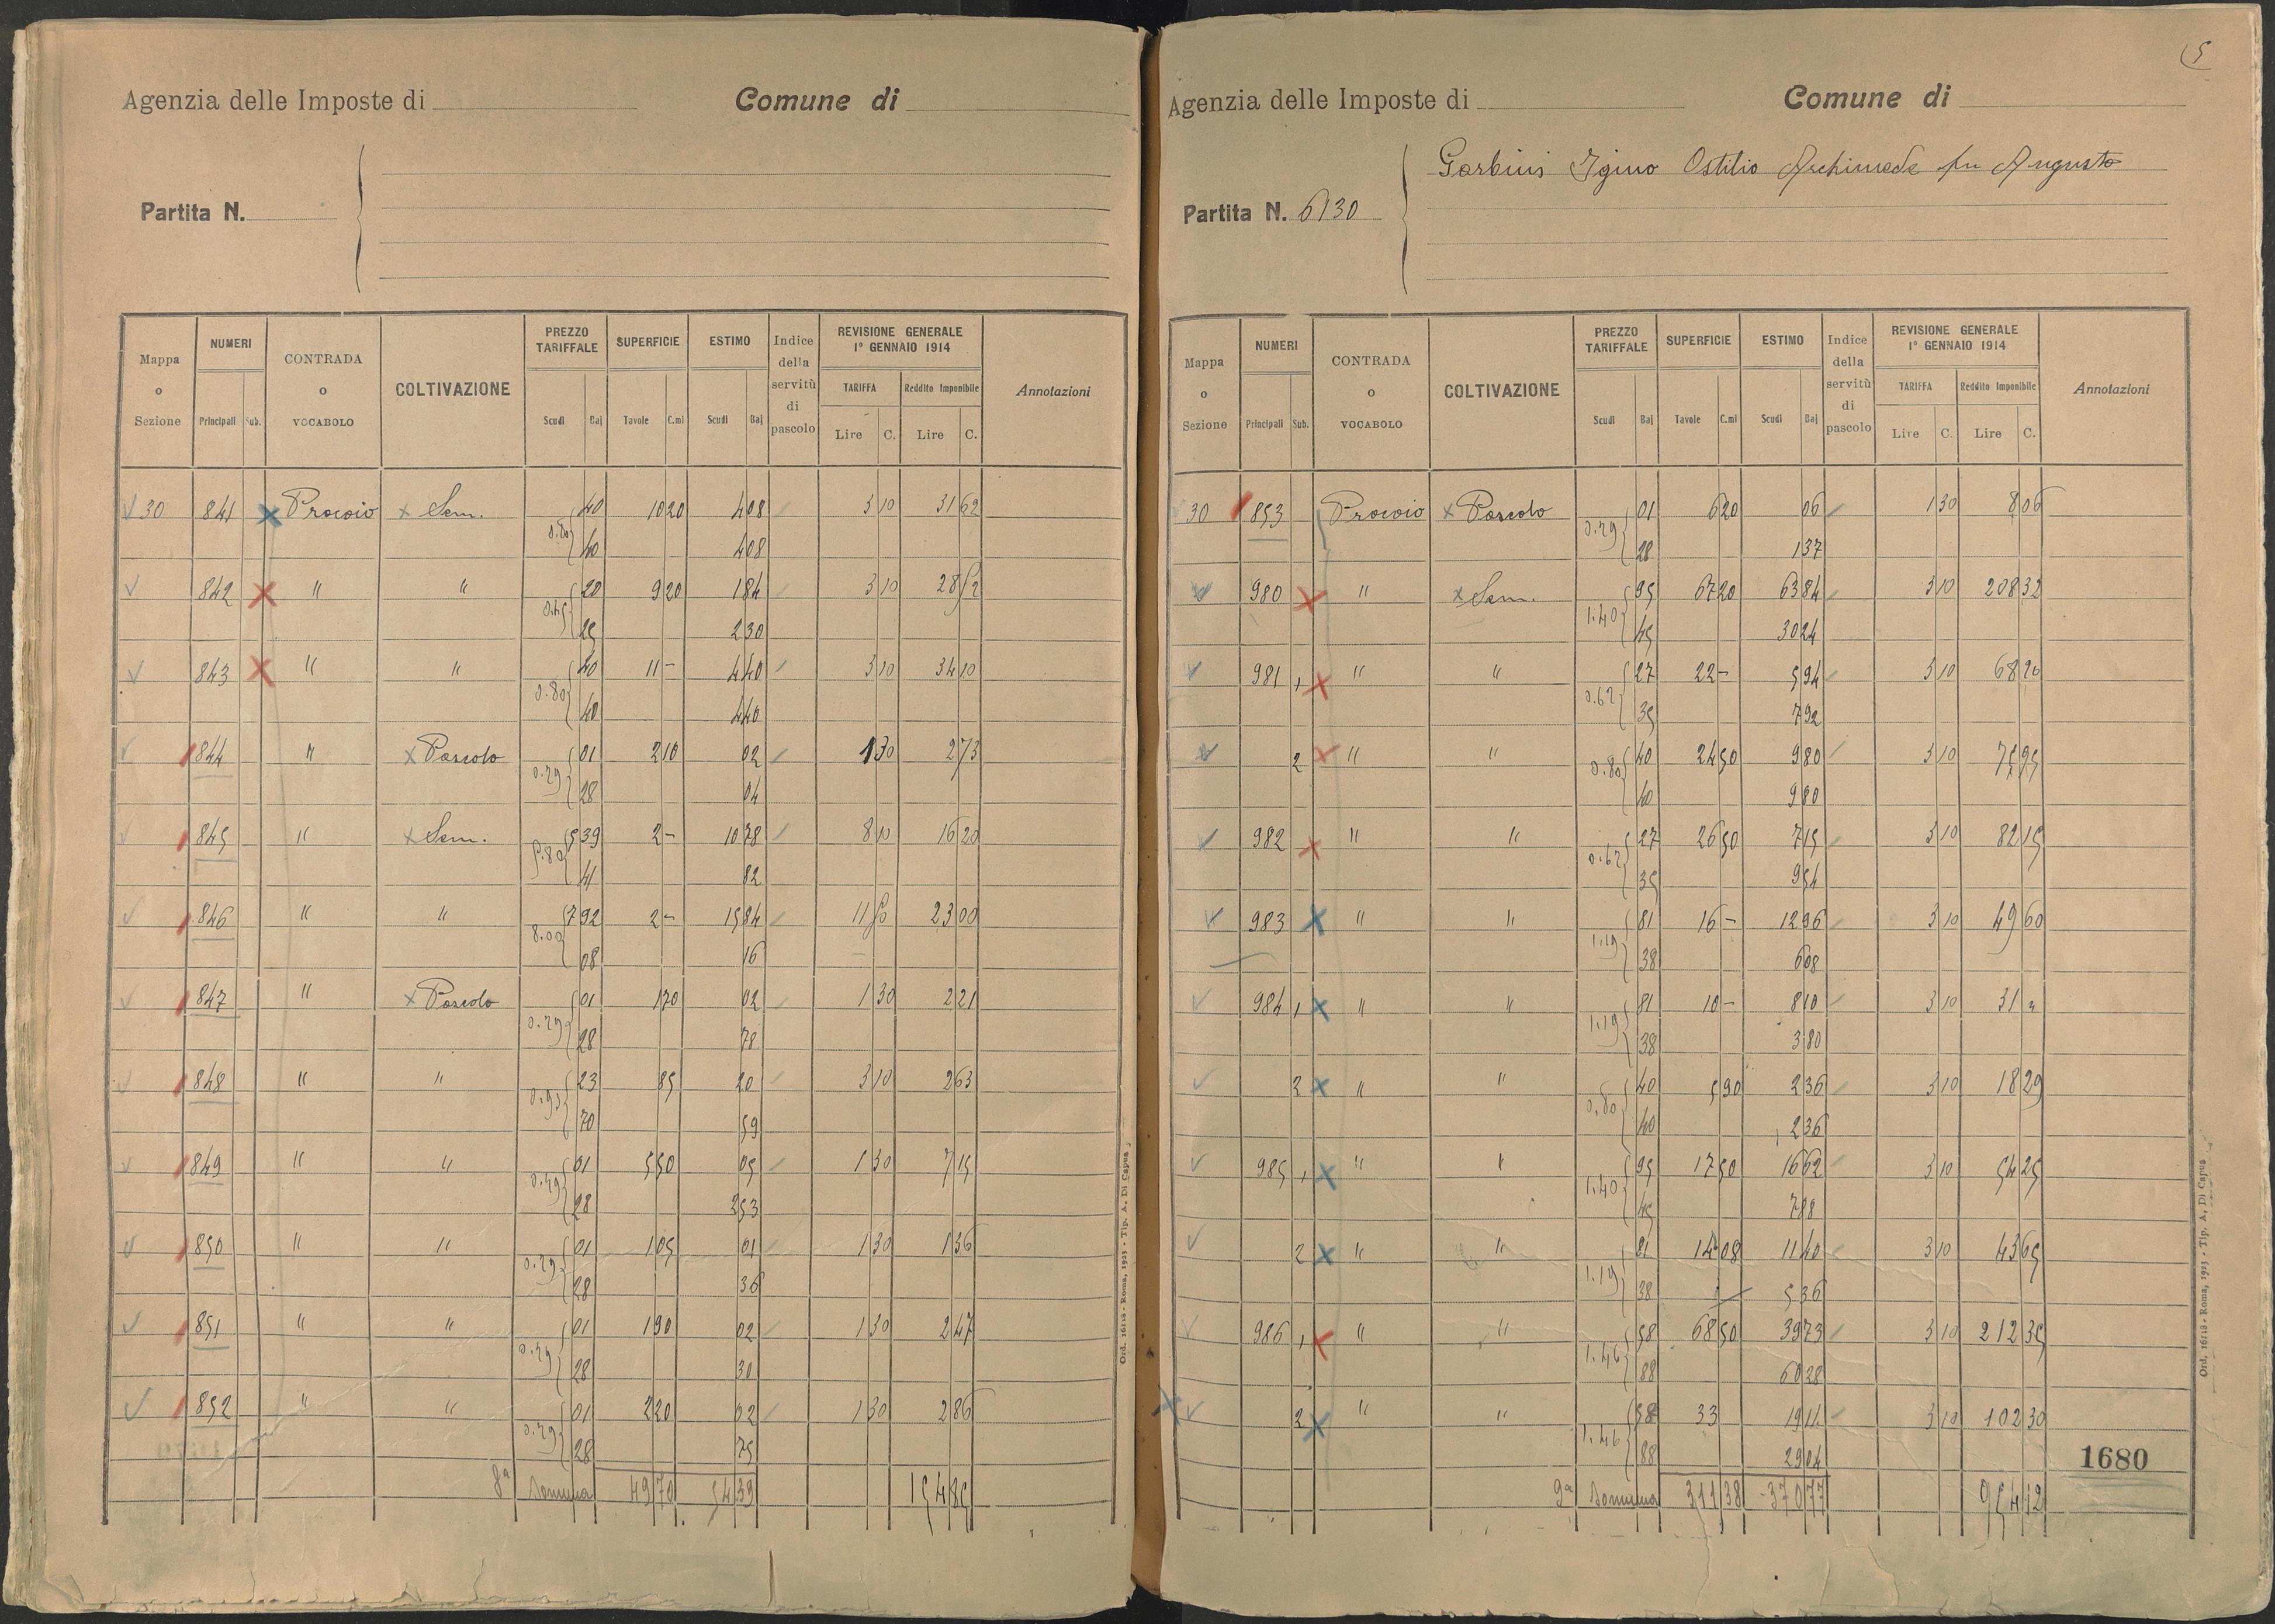 Agenzia delle Imposte di Comune di
Partita N.
Mappa o Sezione NUMERI Principali Sub. CONTRADA o VOCABOLO COLTIVAZIONE PREZZO TARIFFALE Scudi Baj SUPERFICIE Tavole C.mi ESTIMO Scudi Baj Indice della servitù di pascolo REVISIONE GENERALE 1° GENNAIO 1914 TARIFFA Lire C. Reddito Imponibile Lire C. Annotazioni
30 841 Procoio Sem. 40 10 20 4 08 3 10 31 62
0.80 40 4 08
842 " " 20 9 20 1 84 3 10 28 52
0.45 25 2 30
843 " " 40 11 - 4 40 3 10 34 10
0.80 40 4 40
844 " Pascolo 01 2 10 02 1 30 2 73
0.29 28 04
845 " Sem. 5 39 2 - 10 78 8 10 16 20
5.80 41 82
846 " " 7 92 2 - 15 84 11 50 23 00
8.00 08 16
847 " Pascolo 01 1 70 02 1 30 2 21
0.29 28 78
848 " " 23 85 20 3 10 2 63
0.93 70 59
849 " " 01 5 50 05 1 30 7 15
0.29 28 2 53
850 " " 01 1 05 01 1 30 1 36
0.29 28 36
851 " " 01 1 90 02 1 30 2 47
0.29 28 30
852 " " 01 2 20 02 1 30 2 86
0.29 28 75
8a Somma 49 70 54 39 154 85
Ord. 16118 - Roma, 1923 - Tip. A. Di Capua
5
Agenzia delle Imposte di Comune di
Garbini Igino Ostilio Archimede fu Augusto
Partita N. 6130
Mappa o Sezione NUMERI Principali Sub. CONTRADA o VOCABOLO COLTIVAZIONE PREZZO TARIFFALE Scudi Baj SUPERFICIE Tavole C.mi ESTIMO Scudi Baj Indice della servitù di pascolo REVISIONE GENERALE 1° GENNAIO 1914 TARIFFA Lire C. Reddito Imponibile Lire C. Annotazioni
30 853 Procoio Pascolo 01 6 20 06 1 30 8 06
0.29 28 1 37
980 " Sem. 95 67 20 63 84 3 10 208 32
1.40 45 30 24
981 1 " " 27 22 - 5 94 3 10 68 20
0.62 35 7 92
2 " " 40 24 50 9 80 3 10 75 95
0.80 40 9 80
982 " " 27 26 50 7 15 3 10 82 15
0.62 35 9 54
983 " " 81 16 - 12 96 3 10 49 60
1.19 38 6 08
984 1 " " 81 10 - 8 10 3 10 31 "
1.19 38 3 80
2 " " 40 5 90 2 36 3 10 18 29
0.80 40 2 36
985 1 " " 95 17 50 16 62 3 10 54 25
1.40 45 7 88
2 " " 81 14 08 11 40 3 10 43 65
1.19 38 5 36
986 1 " " 58 68 50 39 73 3 10 212 35
1.46 88 60 28
2 " " 58 33 19 14 3 10 102 30
1.46 88 29 04
1680
9a Somma 311 38 370 77 954 12
Ord. 16118 - Roma, 1923 - Tip. A. Di Capua